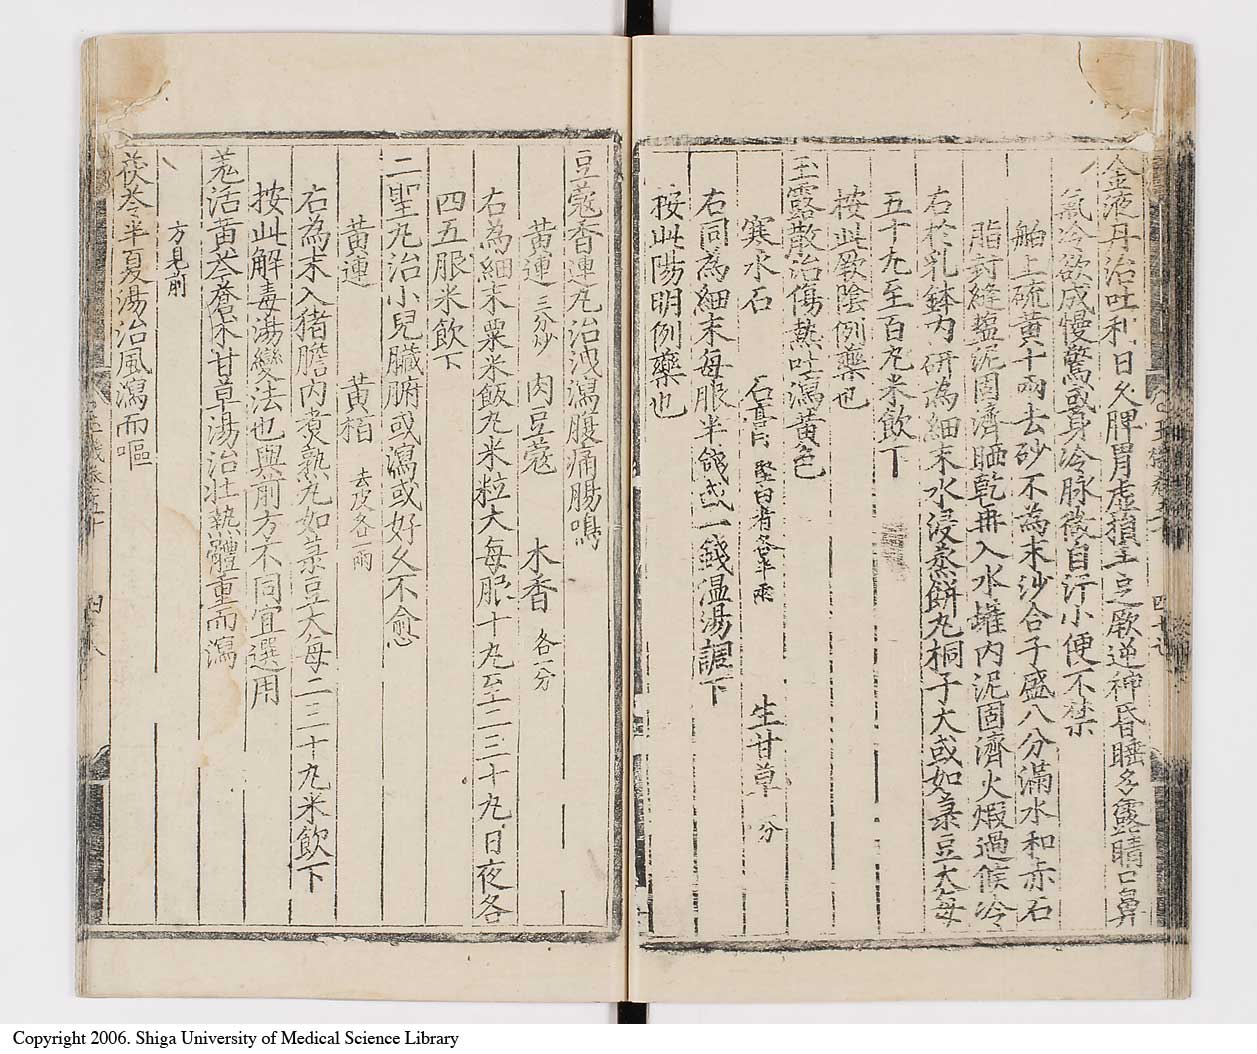 金液丹治吐利日久脾胃虛損主之厥逆神昏睡多露睛口鼻
氣冷欲成慢驚或身冷脉微自汗小便不禁
舶上硫黄十兩去砂不為末沙合子盛八分滿水和赤石
脂封縫塩泥固濟晒乾再入水罐内泥固濟火煆過候冷
右於乳鉢内研為細末水浸蒸餅丸桐子大或如菉豆大每
五十丸至百丸米飲下
按此厥隂例藥也
玉露散治傷熱吐瀉黄色
寒水石 石膏 堅白者各半兩 生甘草 分
右同為細末每服半錢或一錢温湯調下
按此陽明例藥也
四十七
豆蔻香連丸治洩瀉腹痛腸鳴
黄連 三分炒 肉豆蔻 木香 各一分
右為細末粟米飯丸米粒大每服十丸至二三十丸日夜各
四五服米飲下
二聖丸治小兒臓腑或瀉或好久不愈
黄連 黄栢 去皮各一兩
右為末入猪膽内煑熟丸如菉豆大每二三十丸米飲下
按此解毒湯變法也與前方不同宜選用
羗活黄芩蒼朮甘草湯治壮熱體重而瀉
方見前
茯苓半夏湯治風瀉而嘔
四十八
Copyright 2006. Shiga University of Medical Science Library